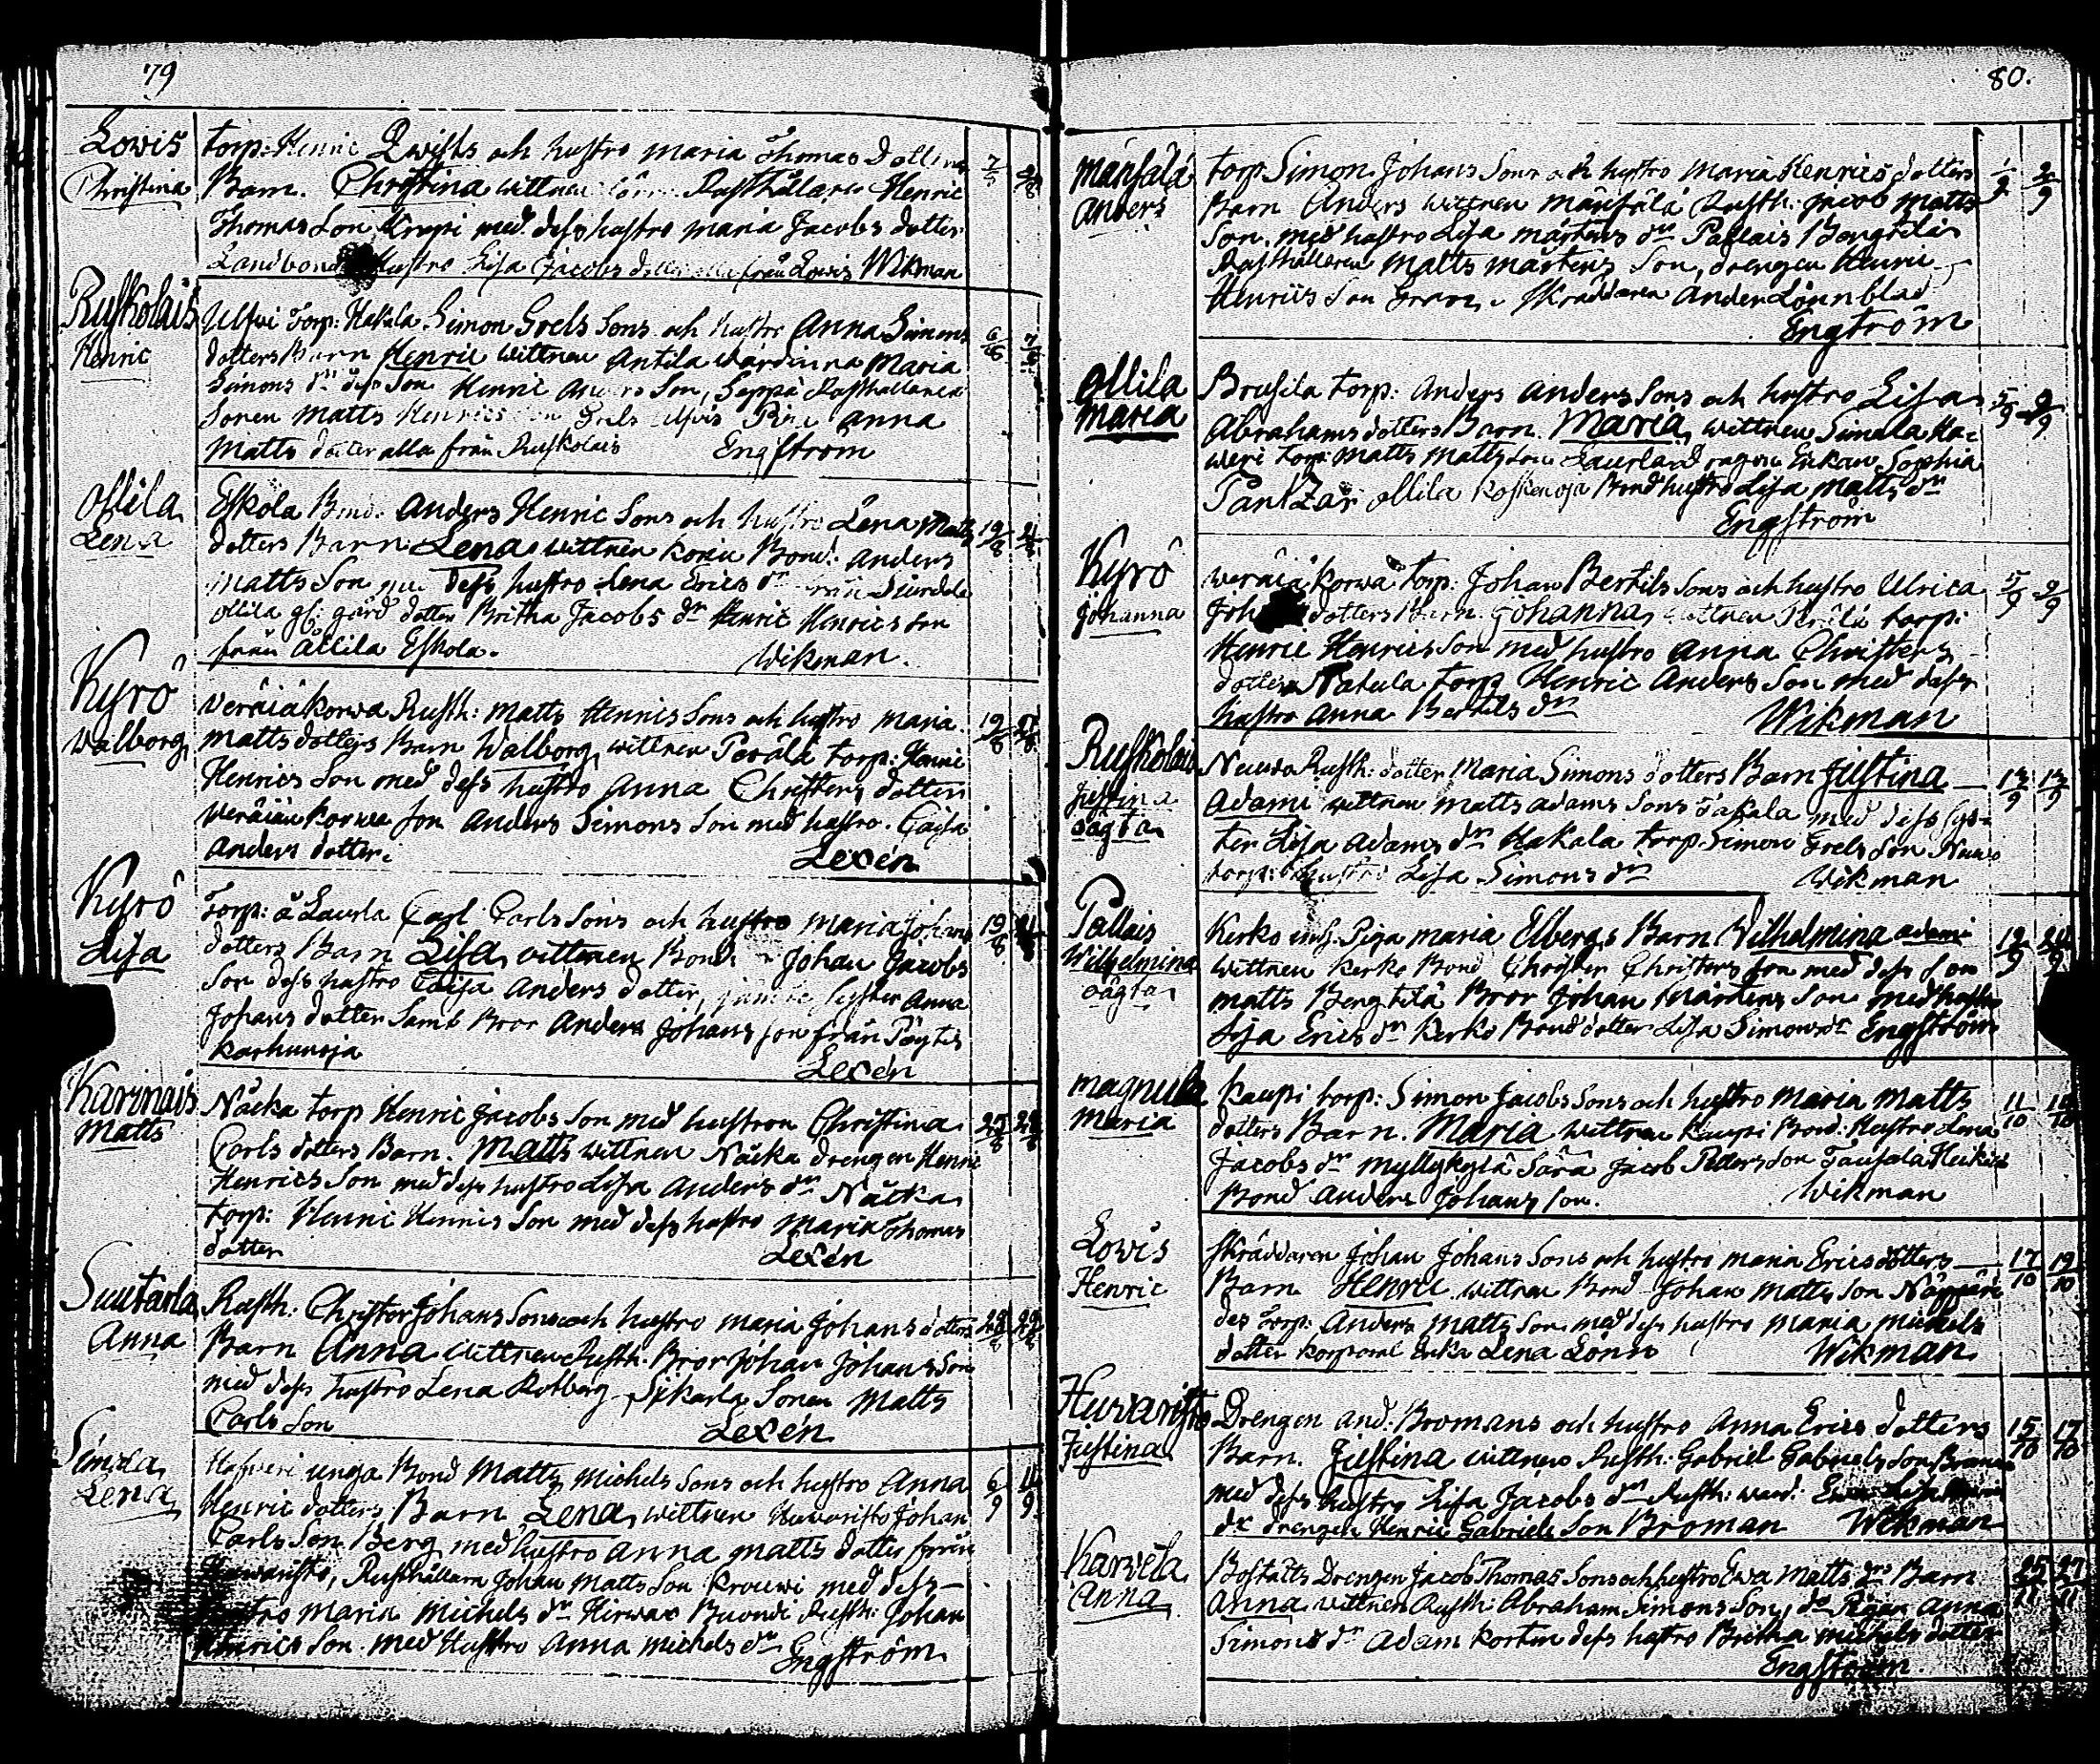 79
Lowis
Christina
torp: Henric Qwists och hustro Maria Thomas dotters 7/8
Barn. Christina wittnen Rusthållaren Henric
Thomas Son Krapi med dess hustro maria Jacobs dotter
Landbond hustro Lisa Jacobs dotter alla från Lowis Wikman
Ruskolais
Henric
Ulfvi Torp: Hakala Simon Grels Sons och hustro Anna Simons 6/8 7/8
dotters Barn Henric wittnen Antila wärdinna Maria
Simons dr dess Son Henric Anders Son, Seppä Rusthållaren
Sonen Matts Henrics Son Grels Ulfvis Piga Anna
Matts dotter alla från Ruskolais Engström
Ollila
Lena
Eskola Bond. Anders Henric Sons och hustro Lena Matts 19/8 21/8
dotters Barn Lena wittnen Bond: Anders
Matts Son dess hustro Lena Erics dr från
ollila gl: gård dotter Britha Jacobs dr Henric Henrics Son
från Ållila Eskola. Wikman.
Kyrö
Walborg
Veräiäkorwa Rusth: Matts Henrics Sons och hustro Maria 19/8 21/8
matts dotters Barn Walborg, wittnen Perälä torp: Henric
Henrics Son med dess hustro Anna Christers dotter
Veräiän korwa son Anders Simons Son med hustro. Caisa
Anders dotter. Lexén
Kyrö
Lisa
Torp: å Laurla Carl Carls Sons och hustro maria Johans 19/8 21/8
dotters Barn Lisa wittnen Bond Johan Jacobs
Son dess hustro Caisa Anders dotter, syster Anna
Johans dotter Samt Bror Anders Johans son från Pöytis
Karhunoja Lexén
Karinais
Matts
Näcka torp Henric Jacobs Son med hustron Christina 25/8 28/8
Carls dotters Barn. Matts wittnen Näcka drengen Henric
Henrics Son med dess hustro Lisa Anders dr Näcka
torp: Henric Henrics Son med dess hustro Maria Thomas
dotter Lexén
Suutarla
Anna
Rusth: Christer Johans Sons och hustro maria Johans dotters 28/8 29/8
Barn Anna wittnen Rusth. Bror Johan Johans Son
med dess hustro Lena Rotberg Sikarla Sonen Matts
Carls Son Lexén
Simala
Lena
Haweri unga Bond Matts Michels Sons och hustro Anna 6/9 11/9
Henric dotters Barn Lena, wittnen Huwaristo Johan
Carls Son Berg med hustro Anna Matts dotter från
Huwaristo, Rusthållaren Johan Matts Son Krouwi med dess
hustro Maria Michels dr Hirwas Buondi Rusth: Johan
Henrics Son med Hustro Anna Michels dr Engström
80.
Mänsälä
Anders
torp Simon Johans Sons och hustro Maria Henrics dotters 1/9 2/9
Barn Anders wittnen Mänsälä Rusth: Jacob Matts
Son. med hustro Lisa Mårtens dr Pallais Bengtilä
Rusthållaren Matts Mårtens Son, drengen Henric
Henrics Son Gran, Skräddaren Anders Lönnblad
Engström
Ollila
Maria
Brusila torp: Anders Anders Sons och hustro Lisa 5/9 9/9
Abrahams dotters Barn. Maria, wittnen Simala Ha=
weri torp: Matts Matts son Enkan Sophia
Pantzar ollila Koskenoja Bond hustro Lisa Matts dr
Engström
Kyrö
Johanna
Weräiä korwa torp: Johan Bertils Sons och hustro Ulrica 5/9 9/9
Joh dotters Barn. Johanna, wittnen Perälä torp:
Henric Henrics Son med hustro Anna Christers
dotter Takula torp Henric Anders Son med dess
hustro Anna Bertils dr Wikman
Ruskolais
Justina
oägta
Nuuro Rusth: dotter Maria Simons dotters Barn Justina 12/9 13/9
Adami wittnen matts adams Sons Takala med dess sys=
ter Lisa Adams dr Hakala torp. Simon Grels Son Nuuro
torp: hustro Lisa Simons dr Wikman
Pallais
Wilhelmina
oägta
Kerko inh. Piga Maria Elbergs Barn Wilhelmina adami 19/9 24/9
wittnen Kerko Bond Christer Christers son med dess son
matts Bengtilä Bror Johan Mårtens Son med hustro
Lisa Erics dr Kerko Bond dotter Lisa Simons dr Engström
Magnula
Maria
Kaupi torp: Simon Jacobs Sons och hustro Maria Matts 11/10
dotters Barn. Maria wittnen Kaupi Bond: Hustro Lena
Jacobs dr Myllykylä Jacob Petters Son
Bond Anders Johans Son. Wikman
Lowis
Henric
Skräddaren Johan Johans Sons och hustro maria Erics dotters 17/10 19/10
Barn Henric wittnen Bond Johan Matts Son Näppäri
des Torp: Anders Matts Son med dess hustro Maria Michels
dotter Korporal Enka Lena Lönn Wikman
Huvaristo
Justina
Drengen And: Bromans och hustro Anna Erics dotters 15/10 17/10
Barn. Justina wittnen Rusth: Gabriel Gabriels Son Broman
med dess hustro Lisa Jacobs dr Rusth: ward:
dr drengen Henric Gabriels Son Broman Wikman
Karvela
Anna
Boställs Drengen Jacob Thomas Sons och hustro Ewa Matts drs Barn 25/11 27/11
Anna wittnen Rusth: Abraham Simons Son, do Pigan Anna
Simons dr Adam Korten dess hustro Britha Michels dotter
Engström